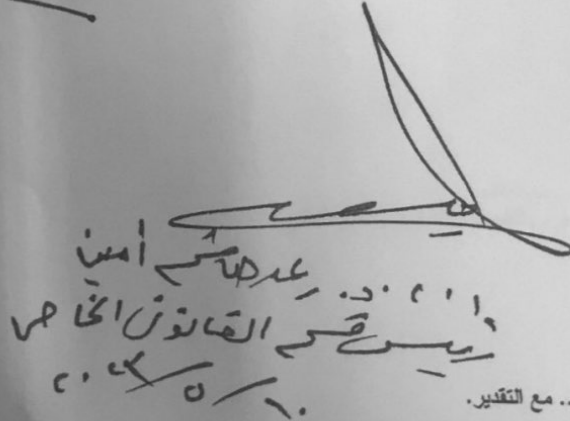 أ.م.د. عدي هاشم أمين
رئيس قسم القانون الخاص
٢٠٢٣/٥/١٠
.. مع التقدير.